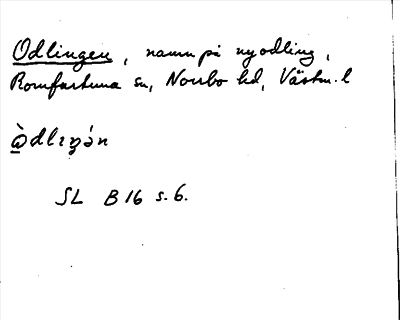 Odlingen, namn på nyodling,
Romfartuna sn, Norrbo hd, Västm. l
ὰdlıŋə́n
SL B 16 s. 6.